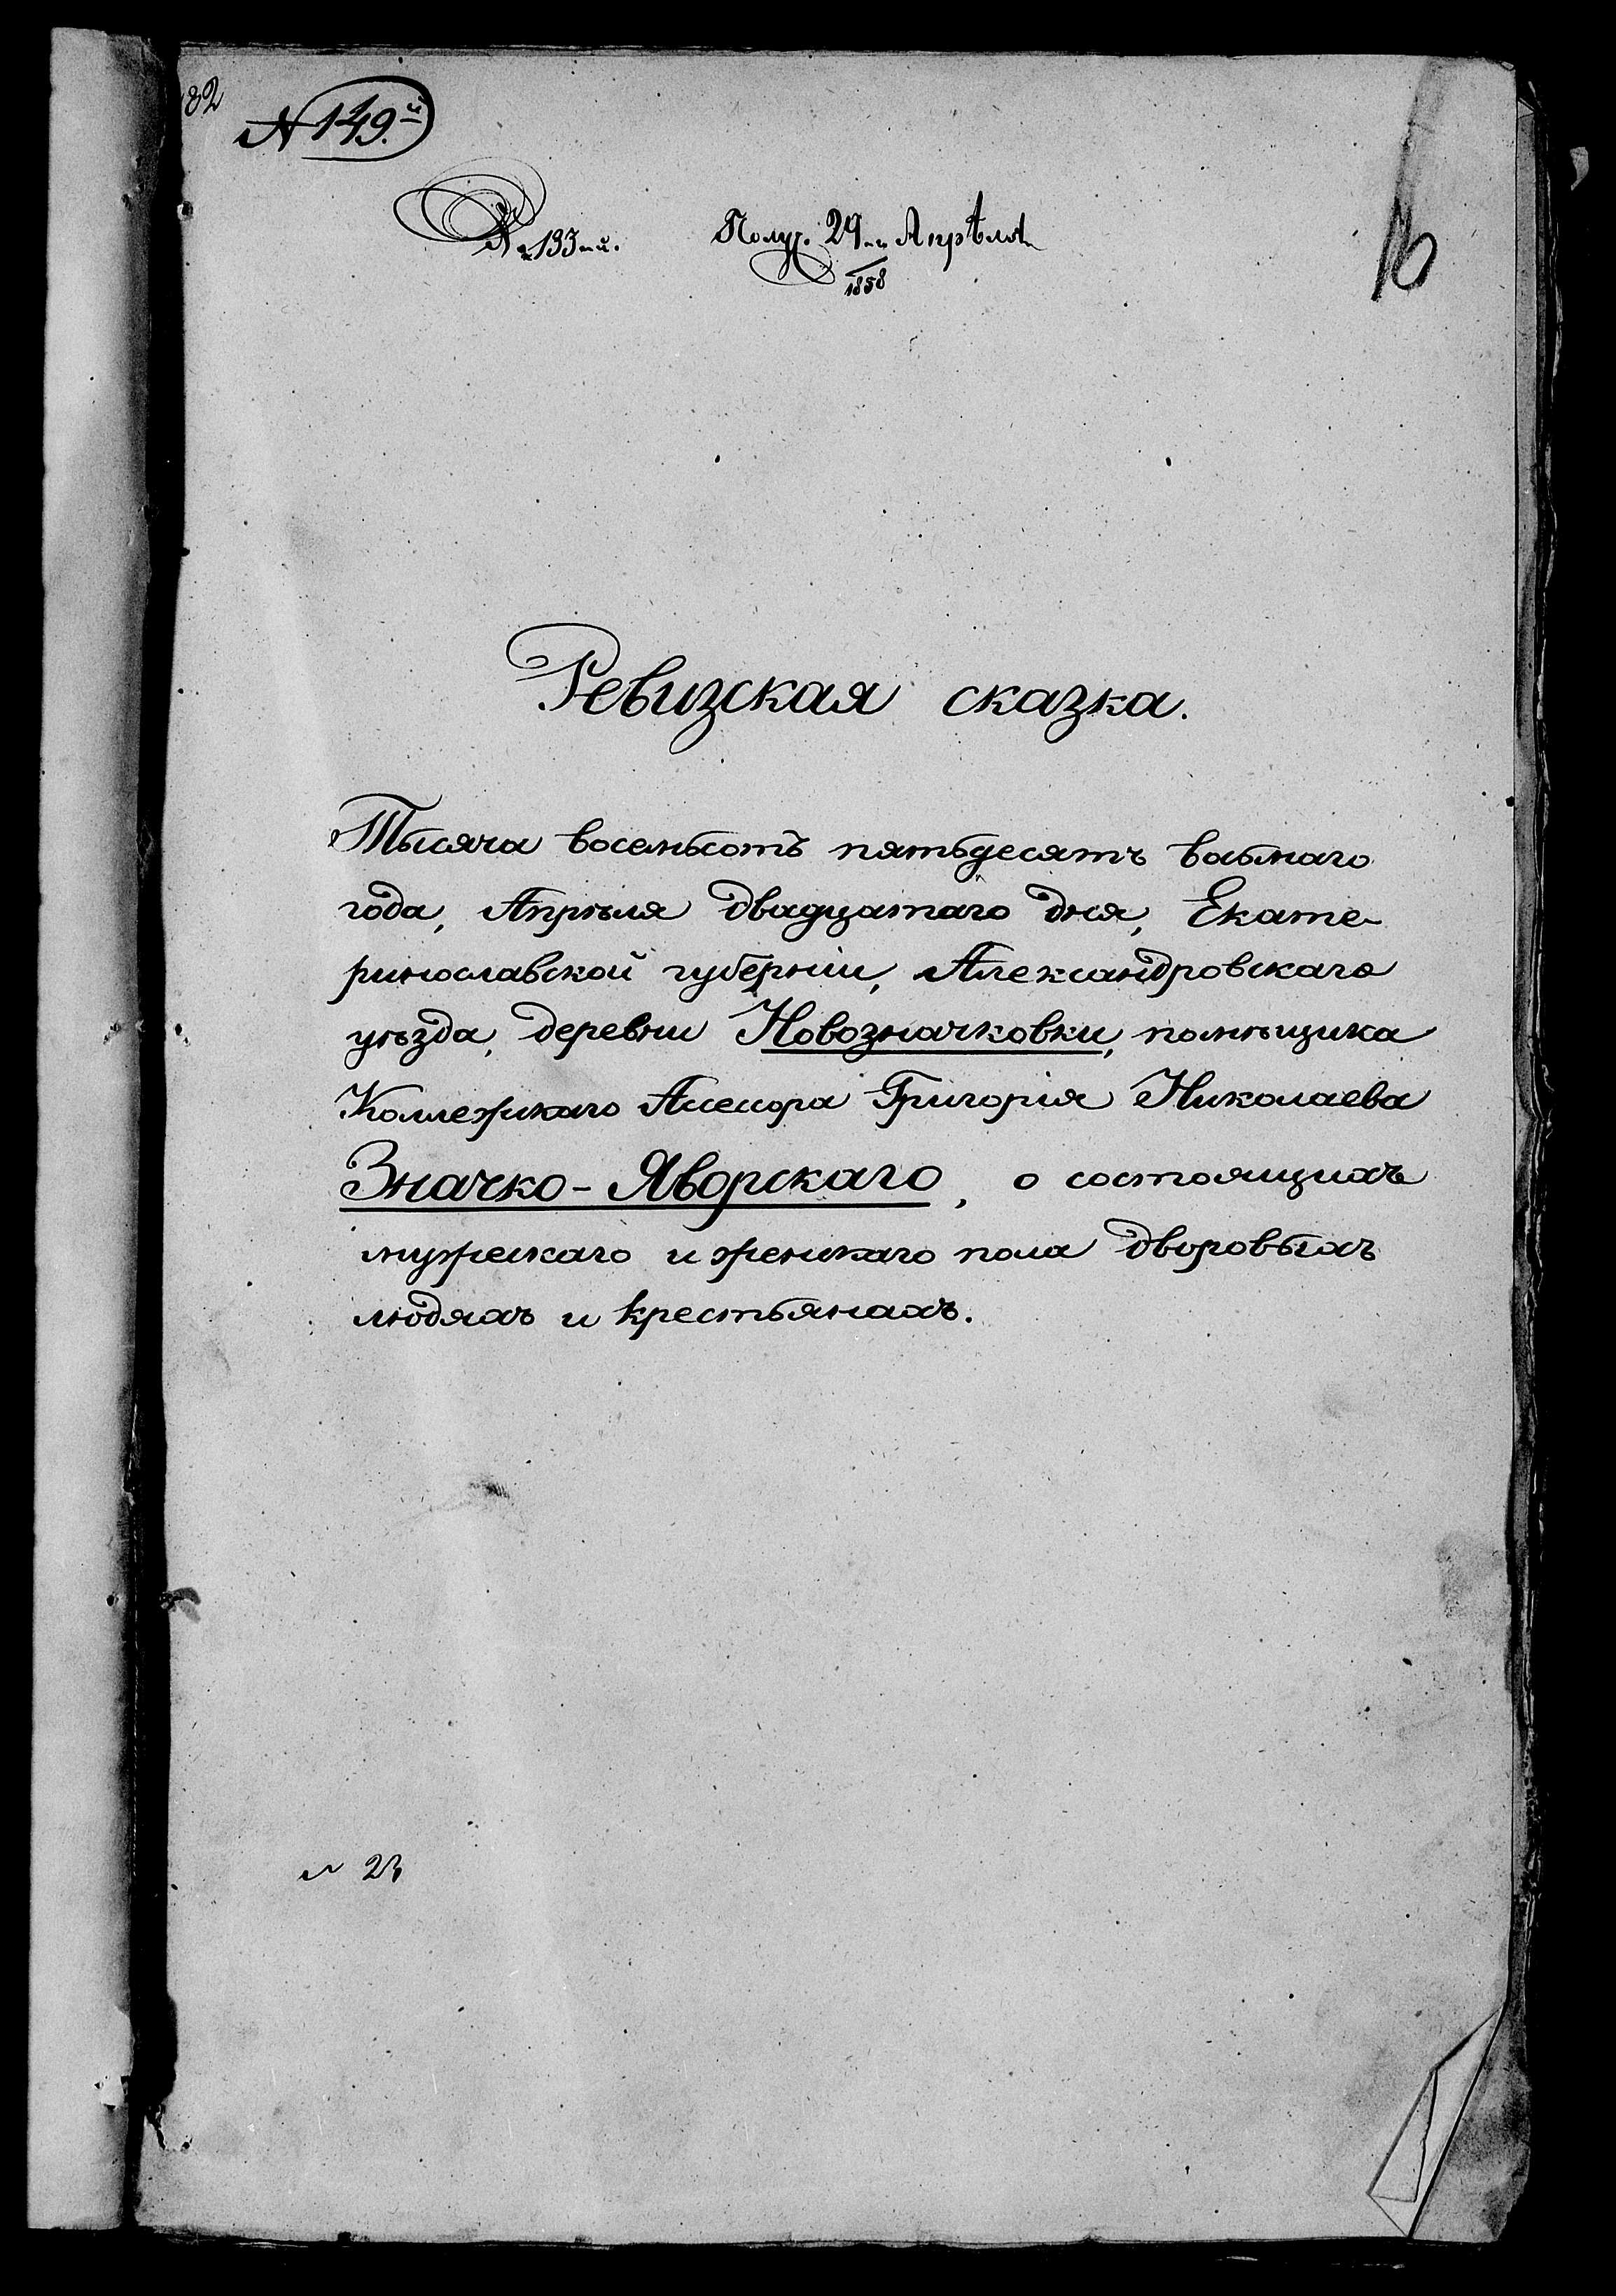 82
N 149.й
№ 133-й.
Получ. 29-го Апрѣля
1858
Ревизская сказка.
Тысяча восемьсотъ пятьдесятъ восьмаго
года, Апрѣля двадцатаго дня, Екате-
ринославской губерніи, Александровскаго
уѣзда, деревни Новозначковки, помѣщика
Коллежскаго Асессора Григорія Николаева
Значко-Яворскаго, о состоящихъ
мужескаго и женскаго пола дворовыхъ
людяхъ и крестьянахъ.